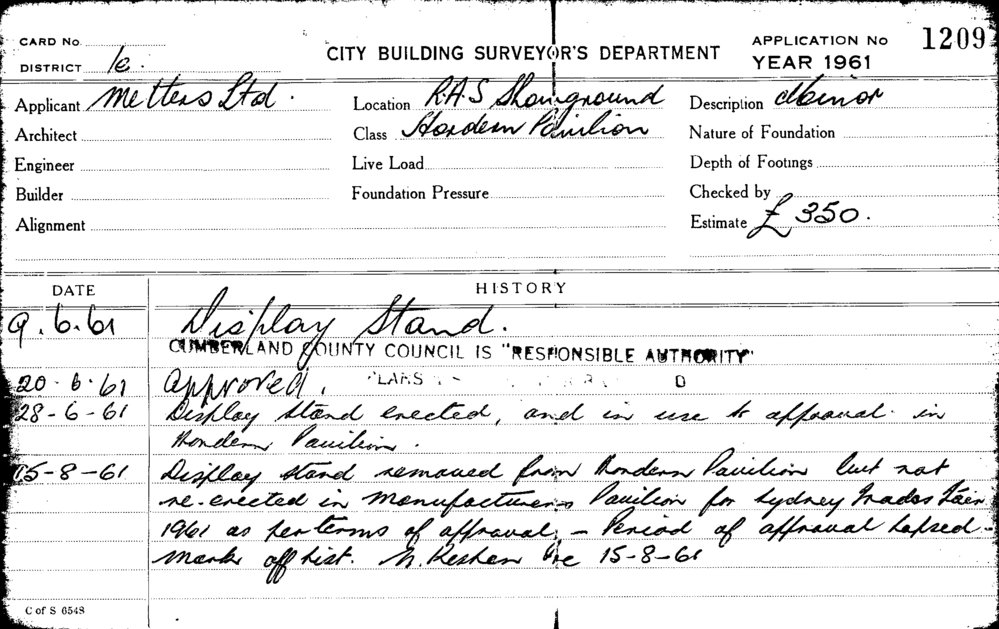 CARD No.
DISTRICT 1c.
CITY BUILDING SURVEYOR'S DEPARTMENT
APPLICATION No 1209
YEAR 1961
Applicant Metters Ltd.
Location R.A.S Showground
Description Minor
Architect
Class Hordern Pavilion
Nature of Foundation
Engineer
Live Load
Depth of Footings
Builder
Foundation Pressure
Checked by
Alignment
Estimate £350.
DATE
HISTORY
9.6.61 Display Stand.
CUMBERLAND COUNTY COUNCIL IS "RESPONSIBLE AUTHORITY"
20.6.61 Approved. PLANS
28-6-61 Display stand erected, and in use to approval in
Hordern Pavilion.
15-8-61 Display stand removed from Hordern Pavilion but not
re-erected in Manufacturers Pavilion for Sydney Trades Fair
1961 as per terms of approval. – Period of approval lapsed –
mark off list. 15-8-61
C of S 6548